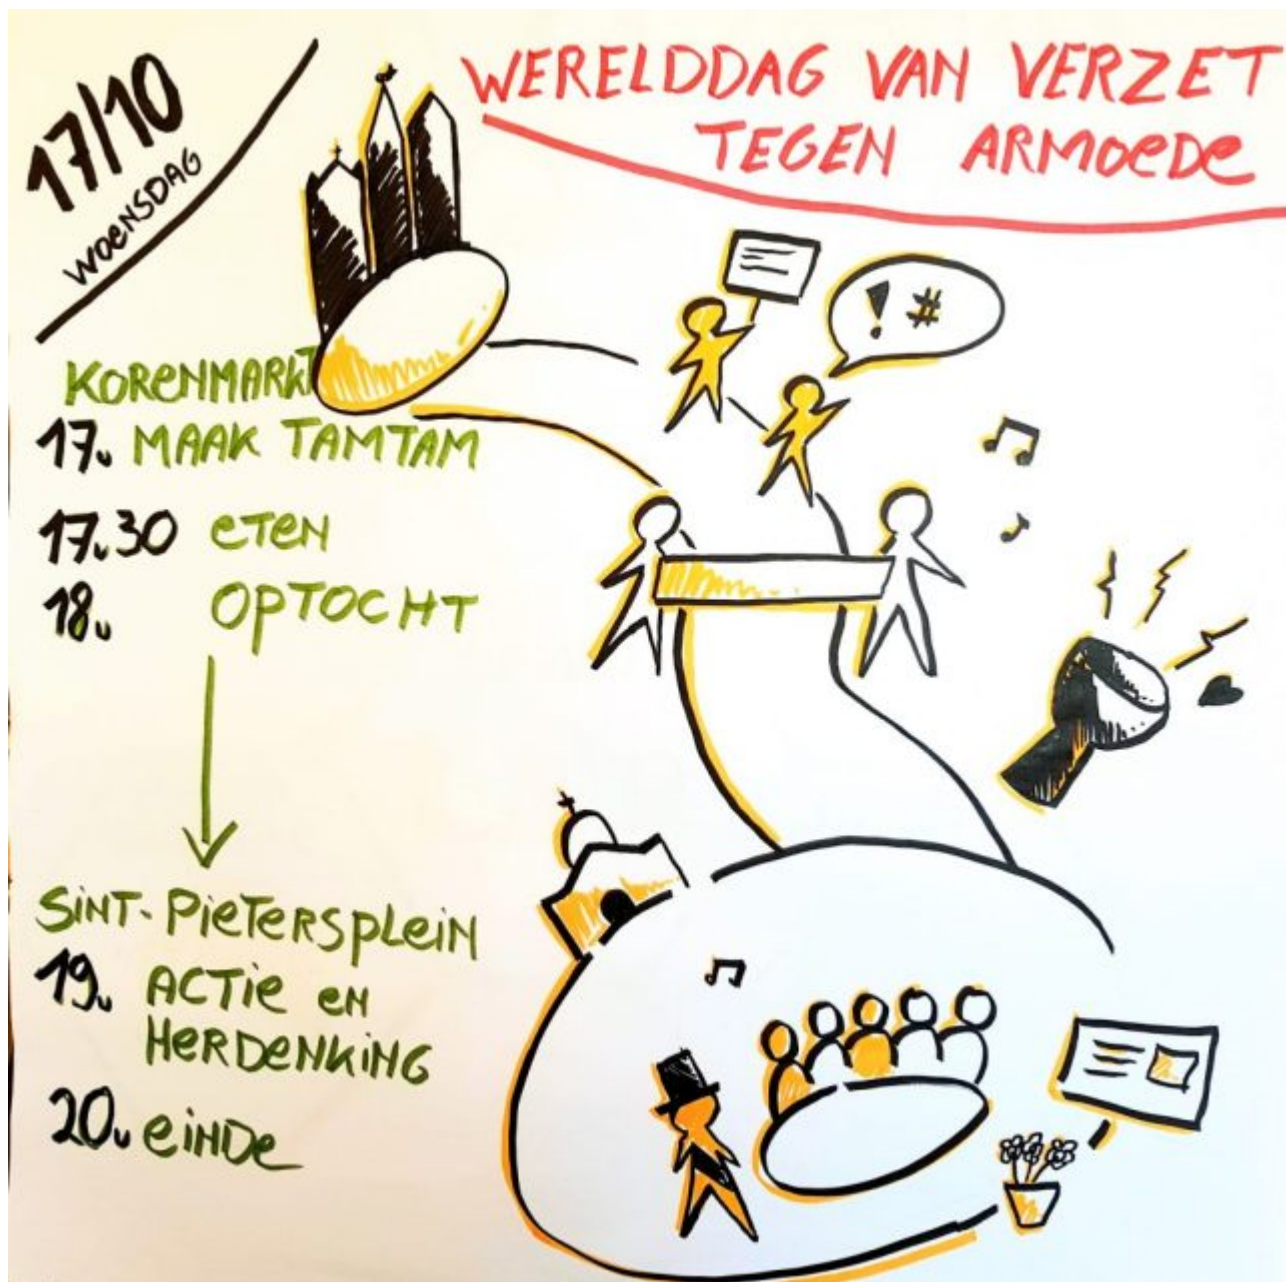 17/10
WOENSDAG
WERELDDAG VAN VERZET
TEGEN ARMOEDE
! #
KORENMARKT
17u MAAK TAMTAM
17u30 ETEN
18u OPTOCHT
SINT-PIETERSPLEIN
19u ACTIE EN
HERDENKING
20u EINDE